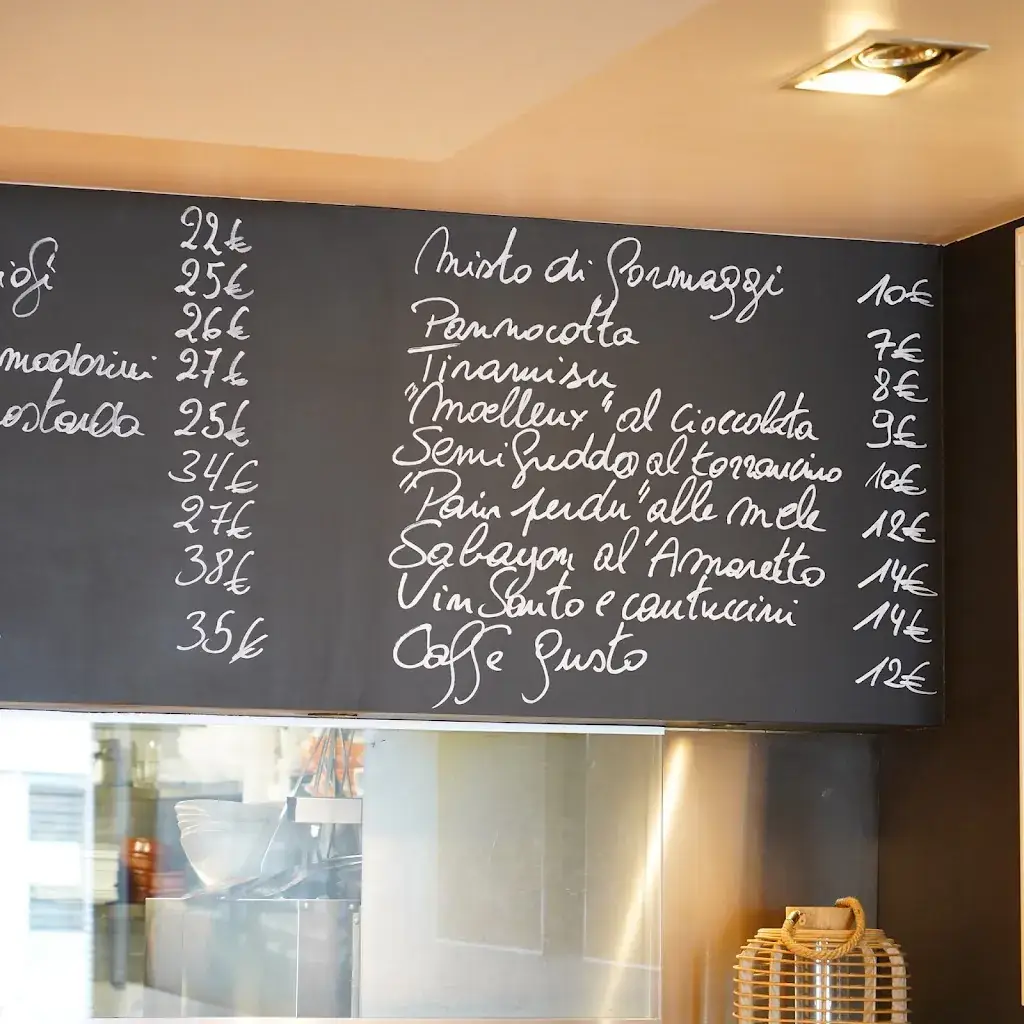 22€
25€
26€
modorini 27€
ostarda 25€
34€
27€
38€
35€
Misto di formaggi 10€
Pannacotta 7€
Tiramisu 8€
"Moelleux" al cioccolata 9€
Semifreddo al torroncino 10€
"Pain perdu" alle mele 12€
Sabayon al'Amaretto 14€
Vin Santo e cantuccini 14€
Caffe gusto 12€